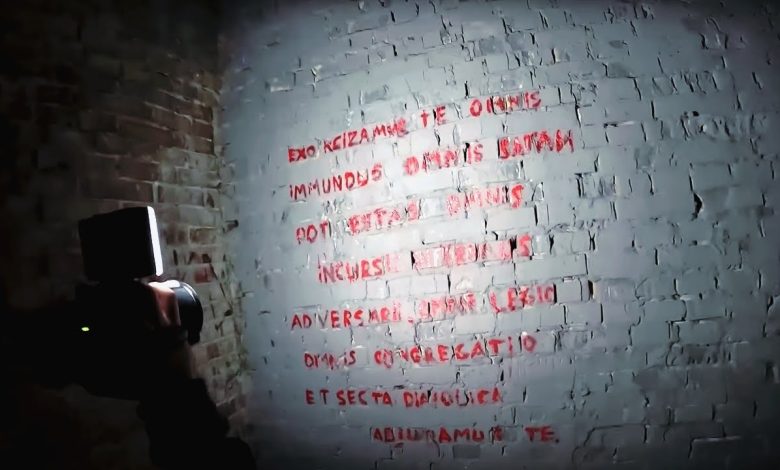 EXORCIZAMUS TE OMNIS
IMMUNDUS OMNIS SATAN
POTESTAS OMNIS
INCURSIO
ADVERSARII OMNIS LEGIO
OMNIS CONGREGATIO
ET SECTA DIABOLICA
ADJURAMUS TE.